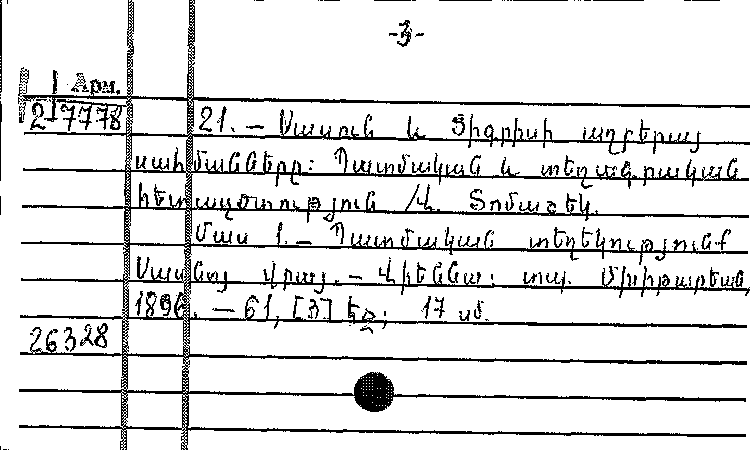 -3-
Арм.
217778
21. – Սասուն և Տիգրիսի աղբերաց
սահմանները: Պատմական և տեղագրական
հետազոտություն /Վ. Տոմաշեկ.
Մաս 1. – Պատմական տեղեկություններ
Սասնոյ վրայ. – Վիեննա: տպ. Մխիթարեան,
1896. – 61, [3] եջ; 17 սմ.
26328